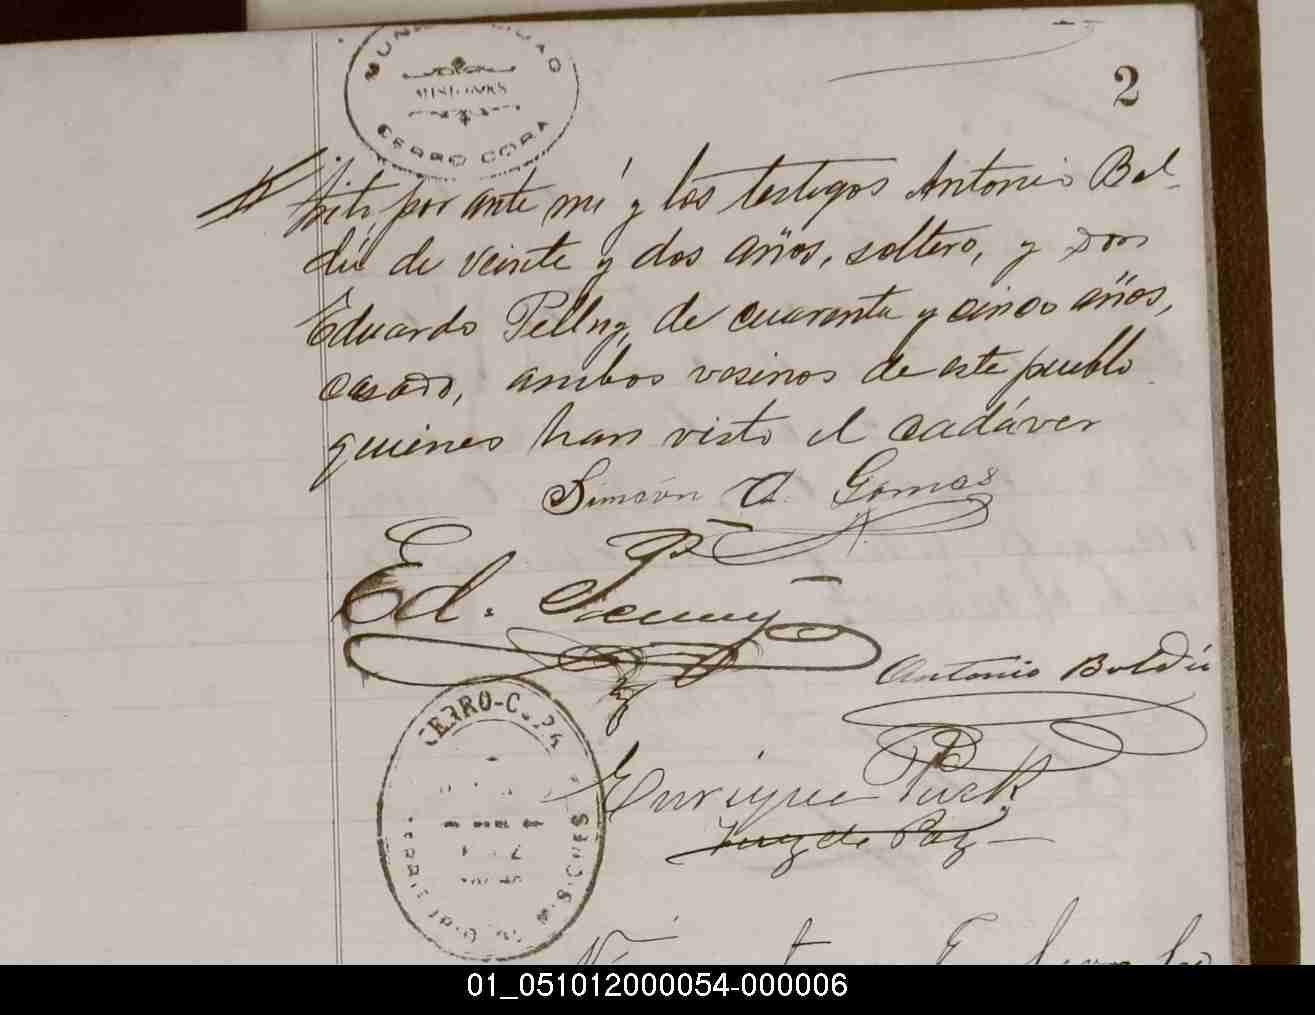 MUNICIPALIDAD
MISIONES
CERRO CORA
2
por ante mí y los testigos Antonio Bol-
dú de veinte y dos años, soltero, y Don
Eduardo de cuarenta y cinco años,
casado, ambos vesinos de este pueblo
quienes han visto el cadáver
Simeón A. Gomas
Ed.
Antonio Boldú
Enrique Puck
Juez de Paz
CERRO-CORA
01_051012000054-000006